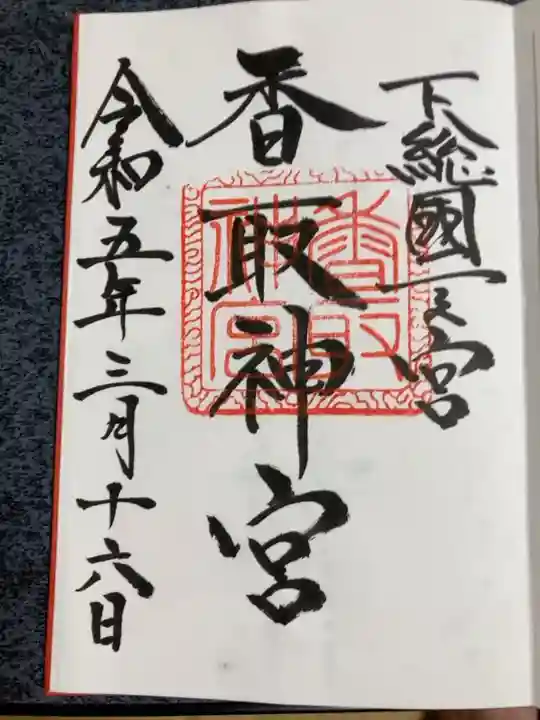 下総國一之宮
香取神宮
香取神宮
令和五年三月十六日